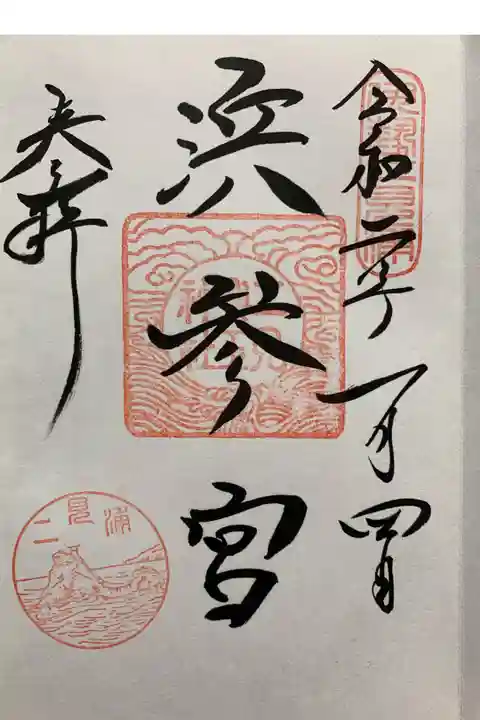 伊勢二見浦
令和二年一月四日
浜参宮
奉拝
二見浦